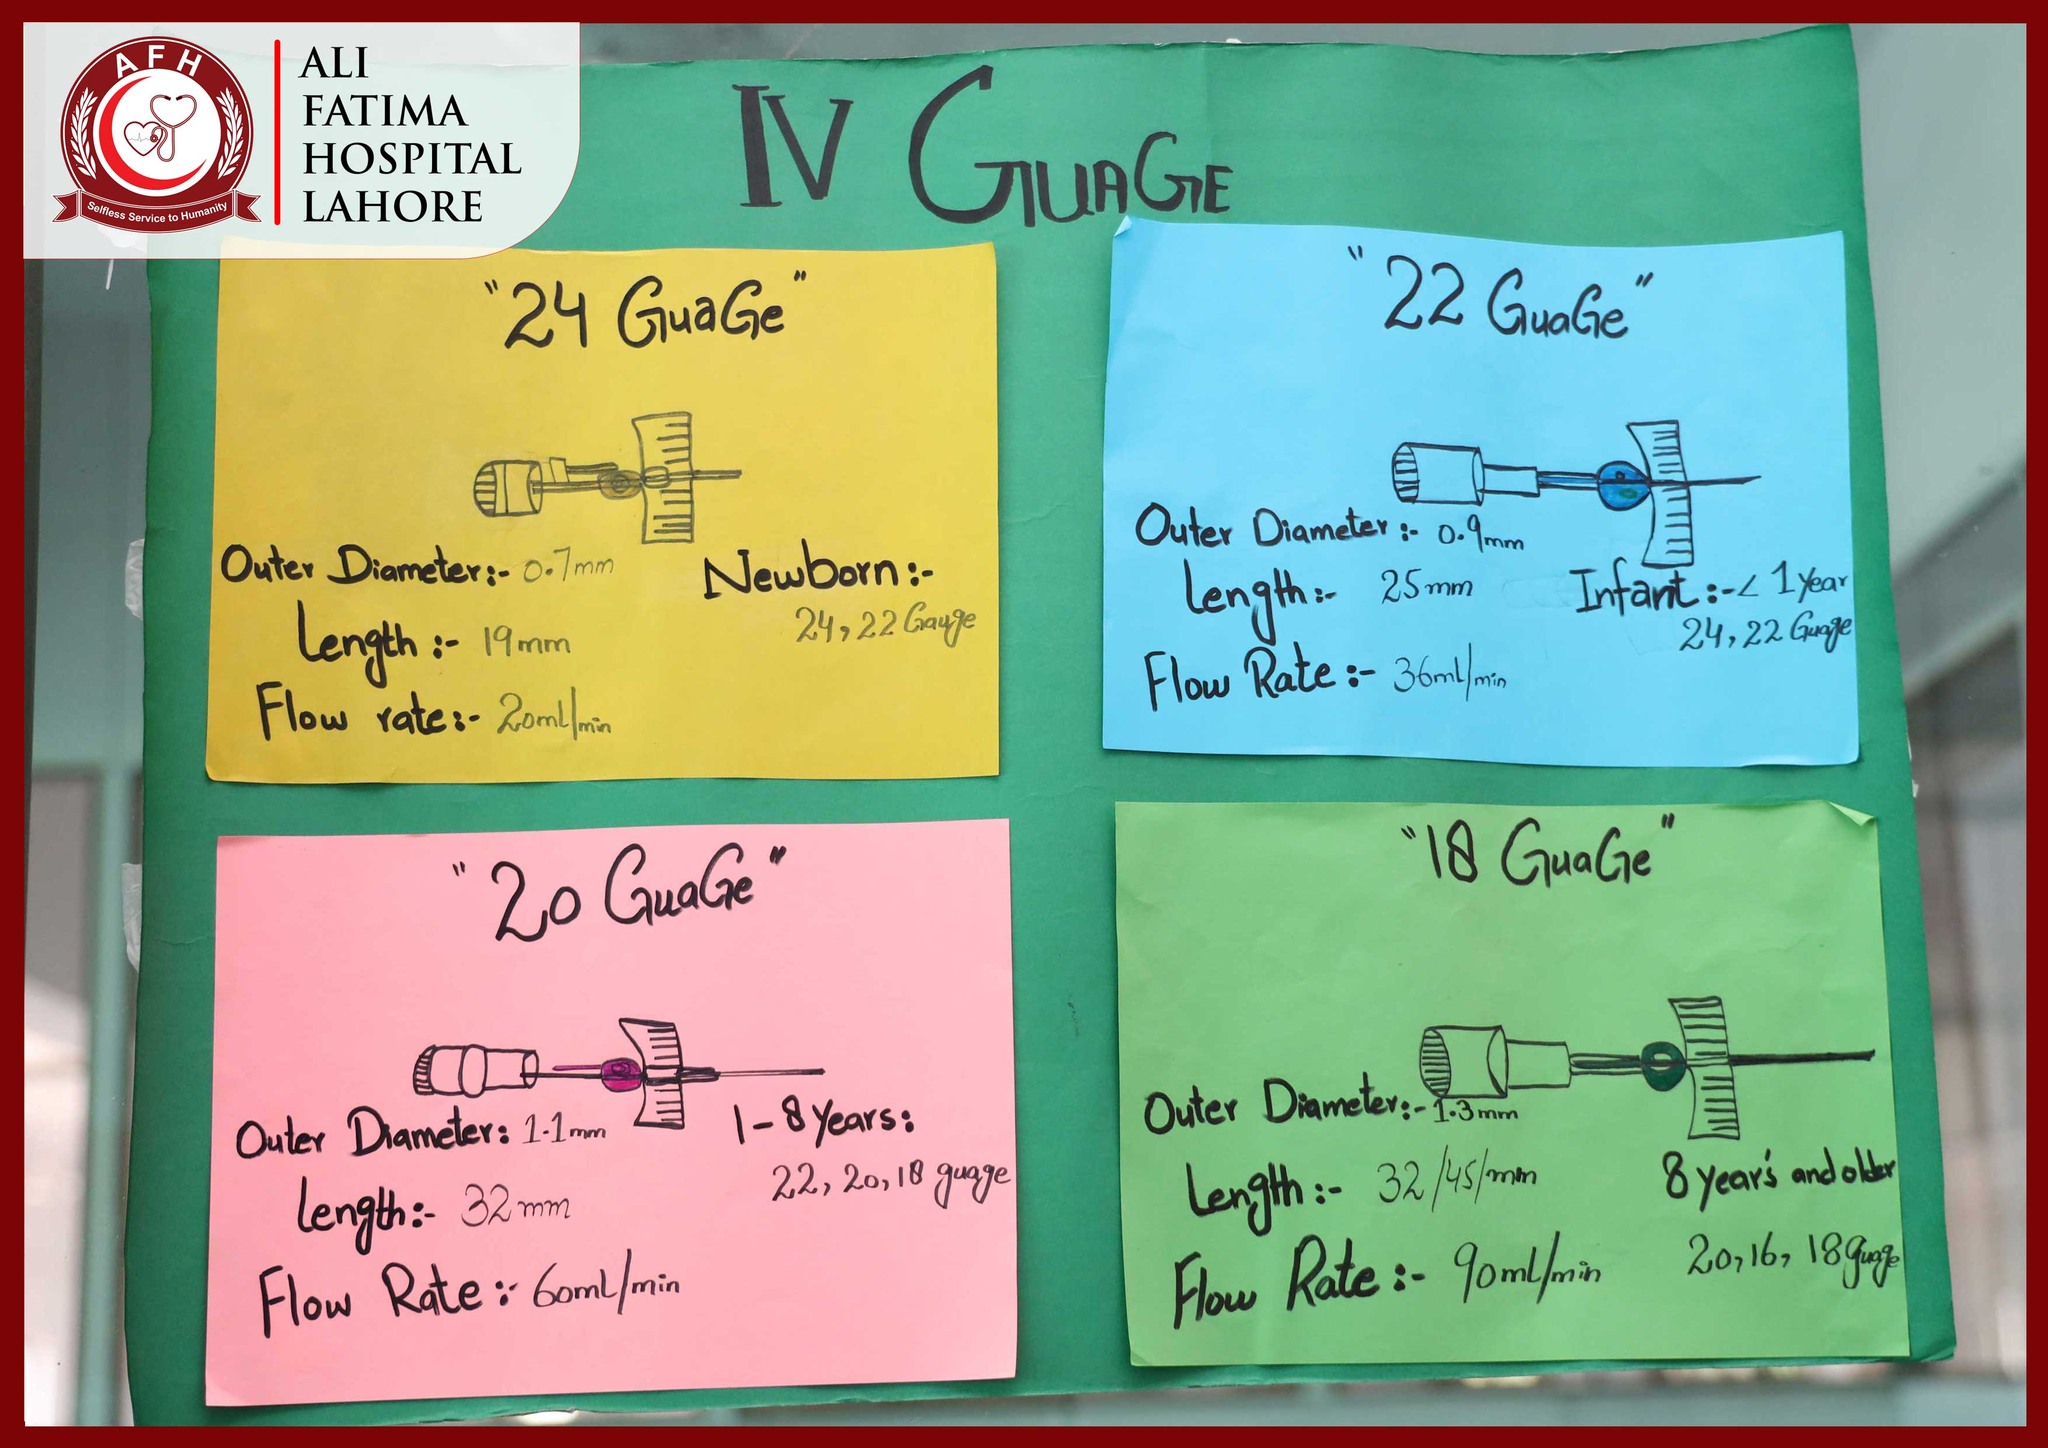 AFH
Selfless Service to Humanity
ALI
FATIMA
HOSPITAL
LAHORE
IV GUAGE
"24 GuaGe"
Outer Diameter:- 0.7mm
Length:- 19mm
Flow rate:- 20ml/min
Newborn:-
24, 22 Gauge
"22 GuaGe"
Outer Diameter:- 0.9mm
Length:- 25mm
Flow Rate:- 36ml/min
Infant:- < 1 year
24, 22 Guage
"20 GuaGe"
Outer Diameter: 1.1mm
Length:- 32mm
Flow Rate:- 60ml/min
1-8 years:
22, 20, 18 guage
"18 GuaGe"
Outer Diameter:- 1.3mm
Length:- 32/45/mm
Flow Rate:- 90ml/min
8 year's and older
20, 16, 18 guage